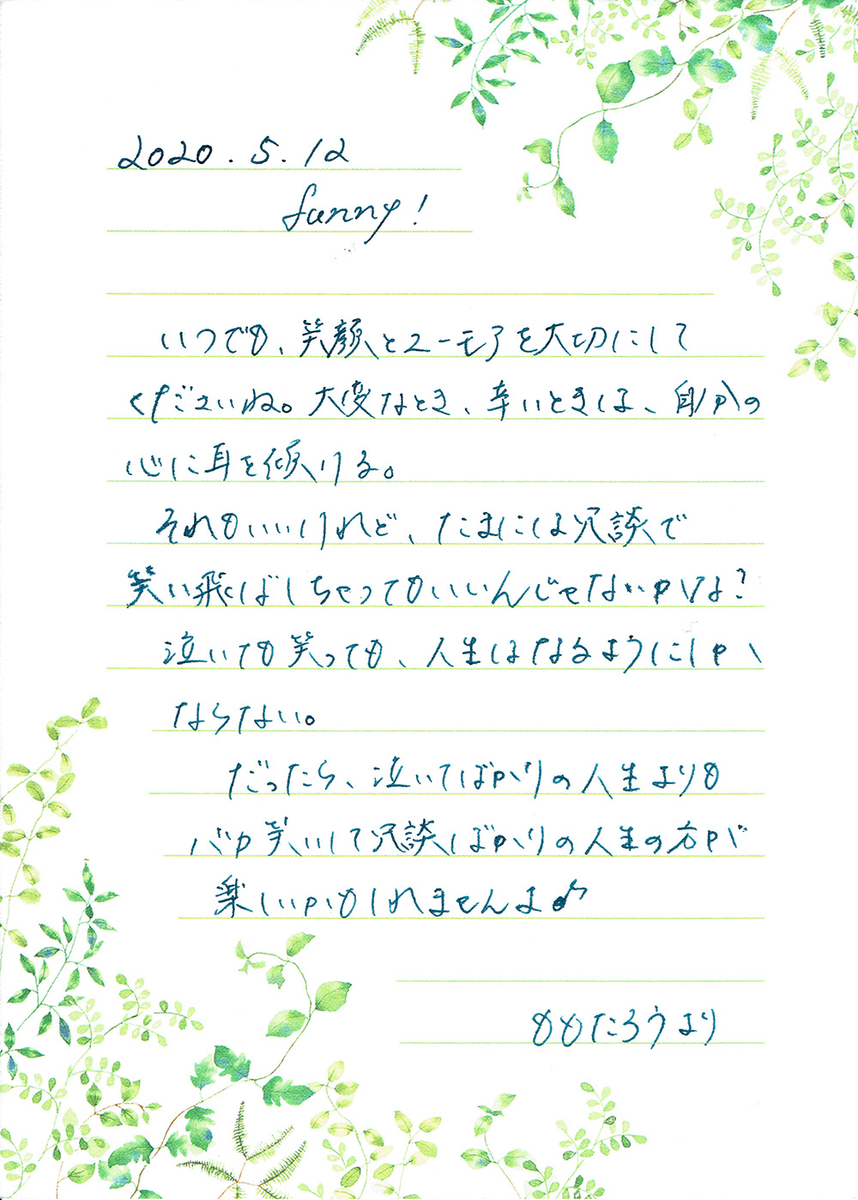 2020.5.12
funny!
いつでも、笑顔とユーモアを大切にして
くださいね。大変なとき、辛いときは、自分の
心に耳を傾ける。
それもいいけれど、たまには冗談で
笑い飛ばしちゃってもいいんじゃないかな?
泣いても笑っても、人生はなるようにしか
ならない。
だったら、泣いてばかりの人生よりも
バカ笑いして冗談ばかりの人生の方が
楽しいかもしれませんよ♪
ももたろうより